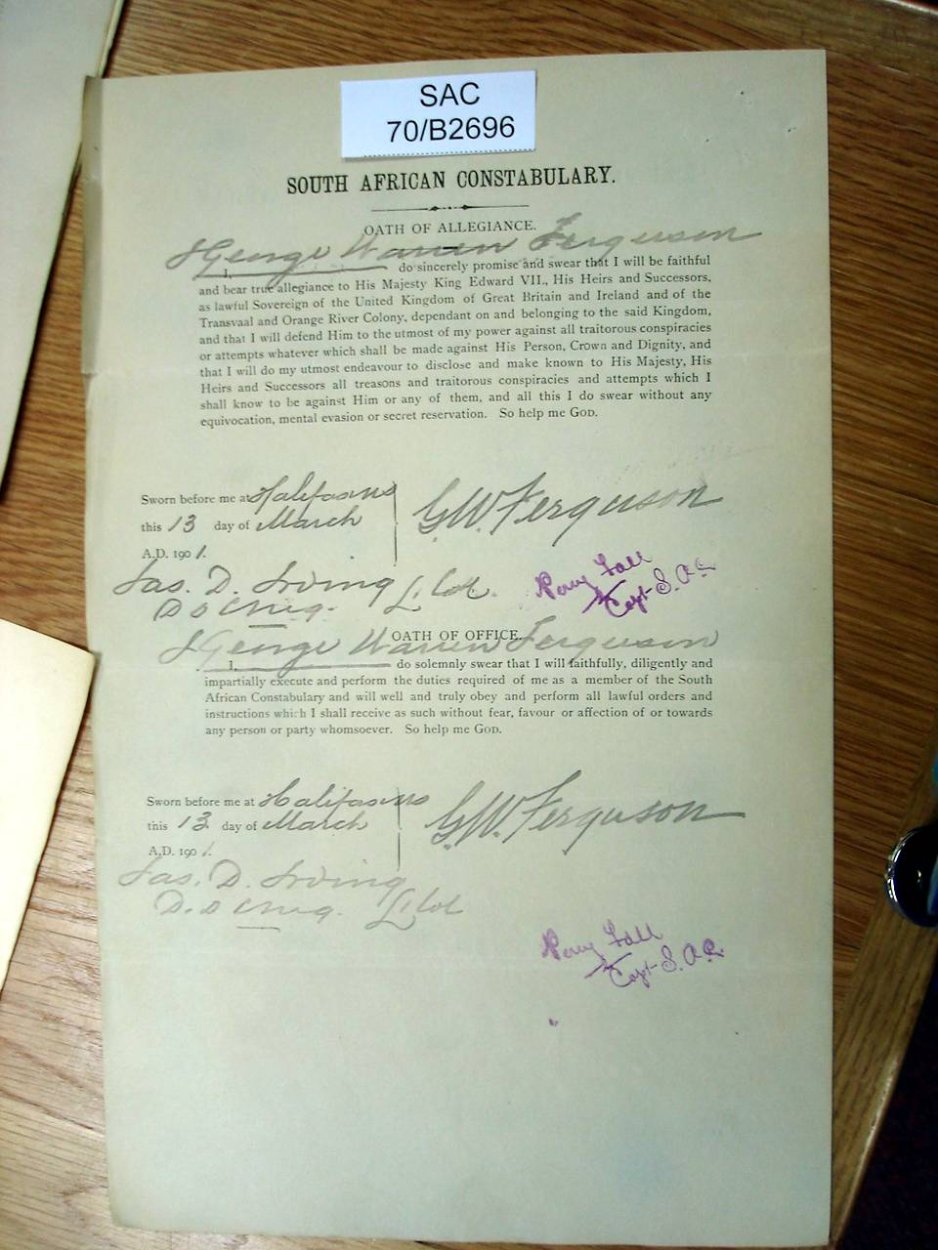 SAC
70/B2696
SOUTH AFRICAN CONSTABULARY.
OATH OF ALLEGIANCE.
I George Warren Ferguson
I, do sincerely promise and swear that I will be faithful
and bear true allegiance to His Majesty King Edward VII., His Heirs and Successors,
as lawful Sovereign of the United Kingdom of Great Britain and Ireland and of the
Transvaal and Orange River Colony, dependant on and belonging to the said Kingdom,
and that I will defend Him to the utmost of my power against all traitorous conspiracies
or attempts whatever which shall be made against His Person, Crown and Dignity, and
that I will do my utmost endeavour to disclose and make known to His Majesty, His
Heirs and Successors all treasons and traitorous conspiracies and attempts which I
shall know to be against Him or any of them, and all this I do swear without any
equivocation, mental evasion or secret reservation. So help me GOD.
Sworn before me at Halifax NS
this 13 day of March
A.D. 1901.
G.W. Ferguson
Jas. D. Irving Lt. Col.
Capt S.A.C.
OATH OF OFFICE.
I George Warren Ferguson
I, do solemnly swear that I will faithfully, diligently and
impartially execute and perform the duties required of me as a member of the South
African Constabulary and will well and truly obey and perform all lawful orders and
instructions which I shall receive as such without fear, favour or affection of or towards
any person or party whomsoever. So help me GOD.
Sworn before me at Halifax NS
this 13 day of March
A.D. 1901.
G.W. Ferguson
Jas. D. Irving
Lt Col
Capt S.A.C.